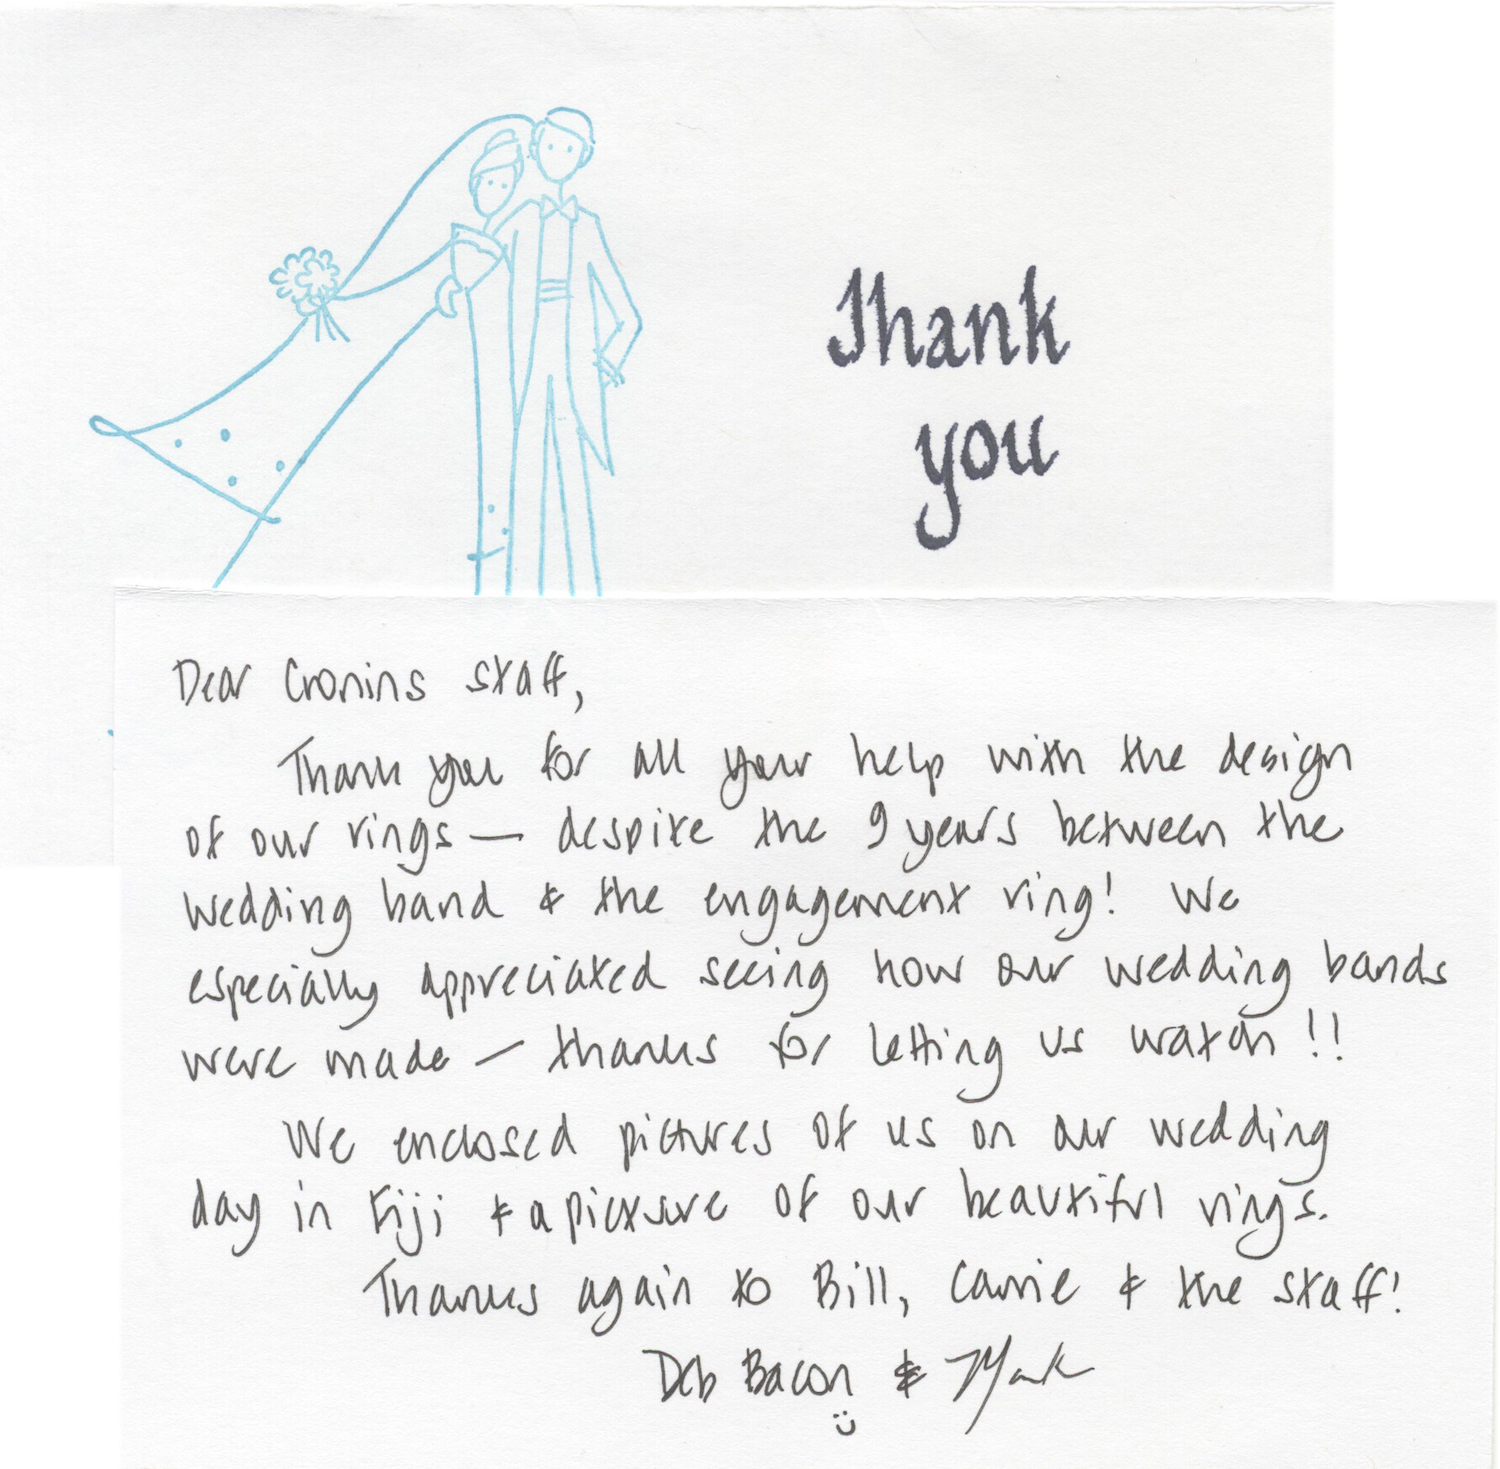 Thank
you
Dear Cronins staff,
Thank you for all your help with the design
of our rings — despite the 9 years between the
wedding band & the engagement ring! We
especially appreciated seeing how our wedding bands
were made — thanks for letting us watch!!
We enclosed pictures of us on our wedding
day in Fiji & a picture of our beautiful rings.
Thanks again to Bill, Carrie & the staff!
Deb Bacon & Mark